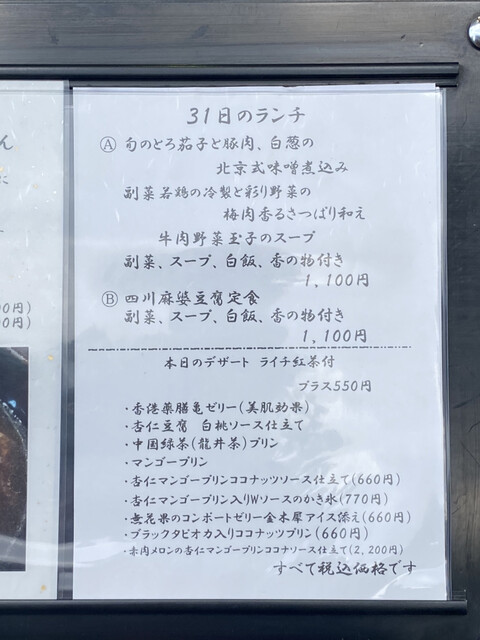 31日のランチ
Ⓐ 旬のとろ茄子と豚肉、白葱の
北京式味噌煮込み
副菜若鶏の冷製と彩り野菜の
梅肉香るさっぱり和え
牛肉野菜玉子のスープ
副菜、スープ、白飯、香の物付き
1,100円
Ⓑ 四川麻婆豆腐定食
副菜、スープ、白飯、香の物付き
1,100円
本日のデザート ライチ紅茶付
プラス550円
・香港薬膳亀ゼリー(美肌効果)
・杏仁豆腐 白桃ソース仕立て
・中国緑茶(龍井茶)プリン
・マンゴープリン
・杏仁マンゴープリンココナッツソース仕立て(660円)
・杏仁マンゴープリン入りWソースのかき氷(770円)
・無花果のコンポートゼリー金木犀アイス添え(660円)
・ブラックタピオカ入りココナッツプリン(660円)
・赤肉メロンの杏仁マンゴープリンココナソース仕立て(2,200円)
すべて税込価格です
ん
に
0円)
0円)